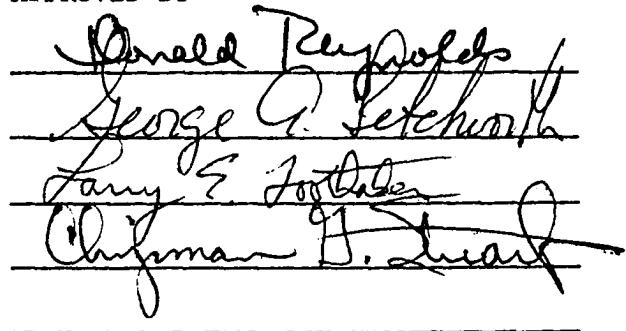 APPROVED BY
Donald Reynolds
George A. Letchworth
Larry E. Toothaker
Chipman G. Stuart